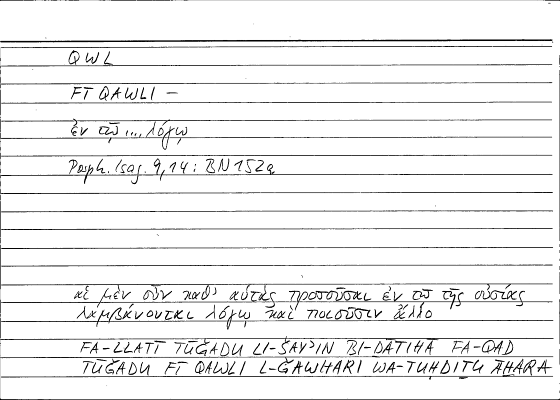 QWL
FĪ QAWLI –
ἐν τῷ ... λόγῳ
Porph. Isag. 9,14 : BN 152a
αἱ μὲν οὖν καθ' αὑτὰς προσοῦσαι ἐν τῷ τῆς οὐσίας
λαμβάνονται λόγῳ καὶ ποιοῦσιν ἄλλο
FA-LLATĪ TŪǦADU LI-ŠAYʾIN BI-ḎĀTIHĀ FA-QAD
TŪǦADU FĪ QAWLI L-ǦAWHARI WA-TUḤDIṮU ĀḪARA